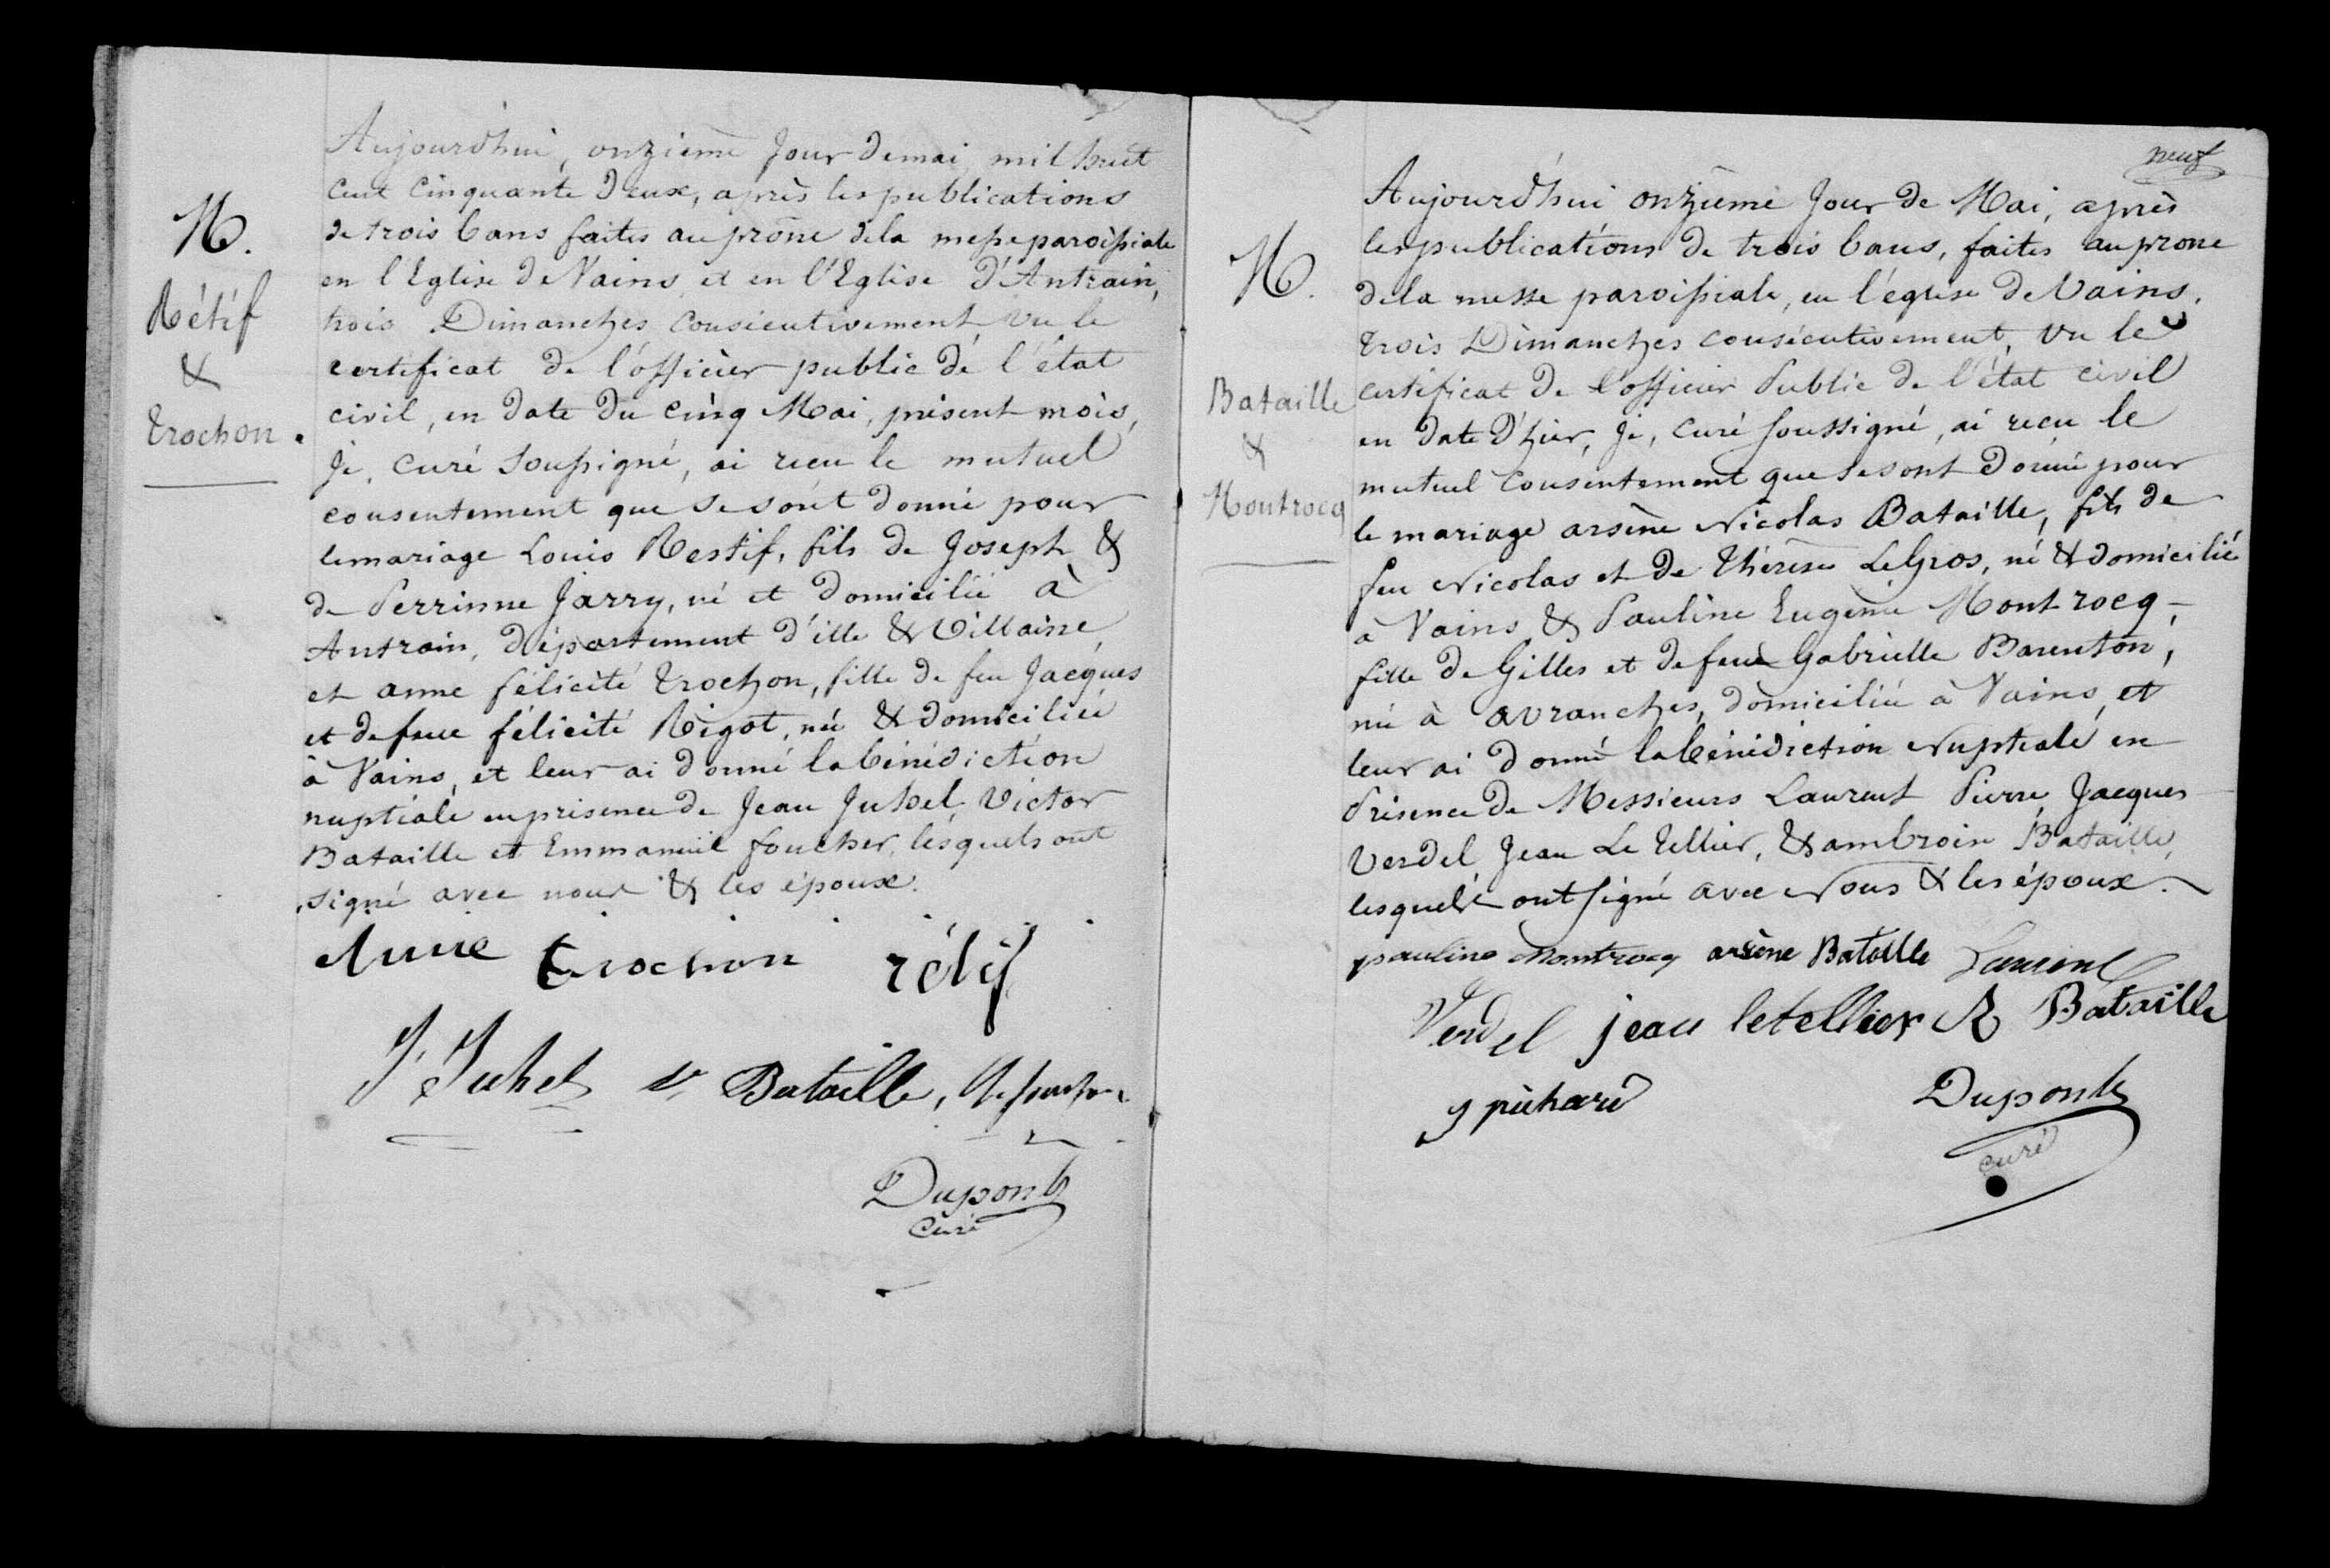 M.
Rétif
&
Trochon.
Aujourd'hui, onzième jour de mai mil huit
cent cinquante deux, après les publications
de trois bans faites au prône de la messe paroissiale
en l'Eglise de Vains, et en l'Eglise D'Antrain,
trois Dimanches consécutivement vu le
certificat de l'officier public de l'état
civil, en date du cinq Mai, présent mois,
je, curé soussigné, ai reçu le mutuel
consentement que se sont donné pour
le mariage Louis Restif, fils de Joseph &
de Perrinne Jarry, né et domicilié à
Antrain, département d'ille & Villaine
et anne félicité Trochon, fille de feu Jacques
et de feue félicité Rigot, née & domiciliée
à Vains, et leur ai donné la bénédiction
nuptiale en présence de Jean Juhel, Victor
Bataille et Emmanuël foucher, lesquels ont
signé avec nous & les époux.
Anne trochon rétif
J. Juhel V Bataille,
Dupont
Curé
neuf
M.
Bataille
&
Montrocq
Aujourd'hui onzième jour de Mai, après
les publications de trois bans, faites au prone
de la messe paroissiale, en l'église de Vains,
trois Dimanches consécutivement, vu le
certificat de l'officier Public de l'état civil
en date d'hier, je, curé soussigné, ai reçu le
mutuel consentement que se sont donné pour
le mariage arsène Nicolas Bataille, fils de
feu Nicolas et de Thérèse LeGros, né & domicilié
à Vains & Pauline Eugénie Montrocq,
fille de Gilles et de feue Gabrielle Barenton,
née à avranches, domiciliée à Vains, et
leur ai donné la bénédiction Nuptiale en
Présence de Messieurs Laurent Pierre, Jacques
Verdel Jean Le Tellier, & ambroise Bataille,
lesquels ont signé avec Nous & les époux.
pauline Montrocq arsène Bataille Laurent
Verdel jean letellier A Bataille
Dupont
curé